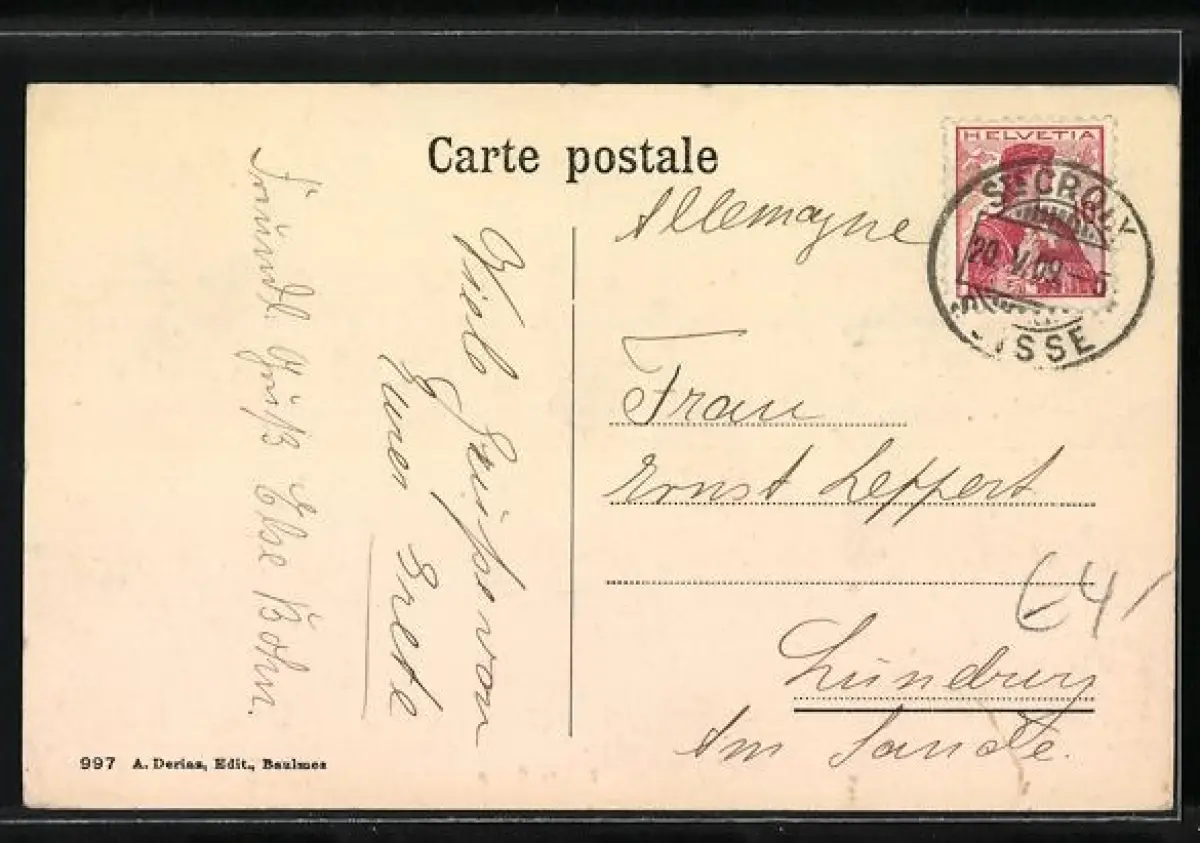 Carte postale
HELVETIA
STE CROIX
20.V.09.-5
SUISSE
Allemagne
Frau
Ernst Leppert
Lüneburg
Am Sande.
64
Viele Grüße von
Eurer Grete
Freundl. Gruß Else Bohn.
997 A. Deriaz, Edit., Baulmes